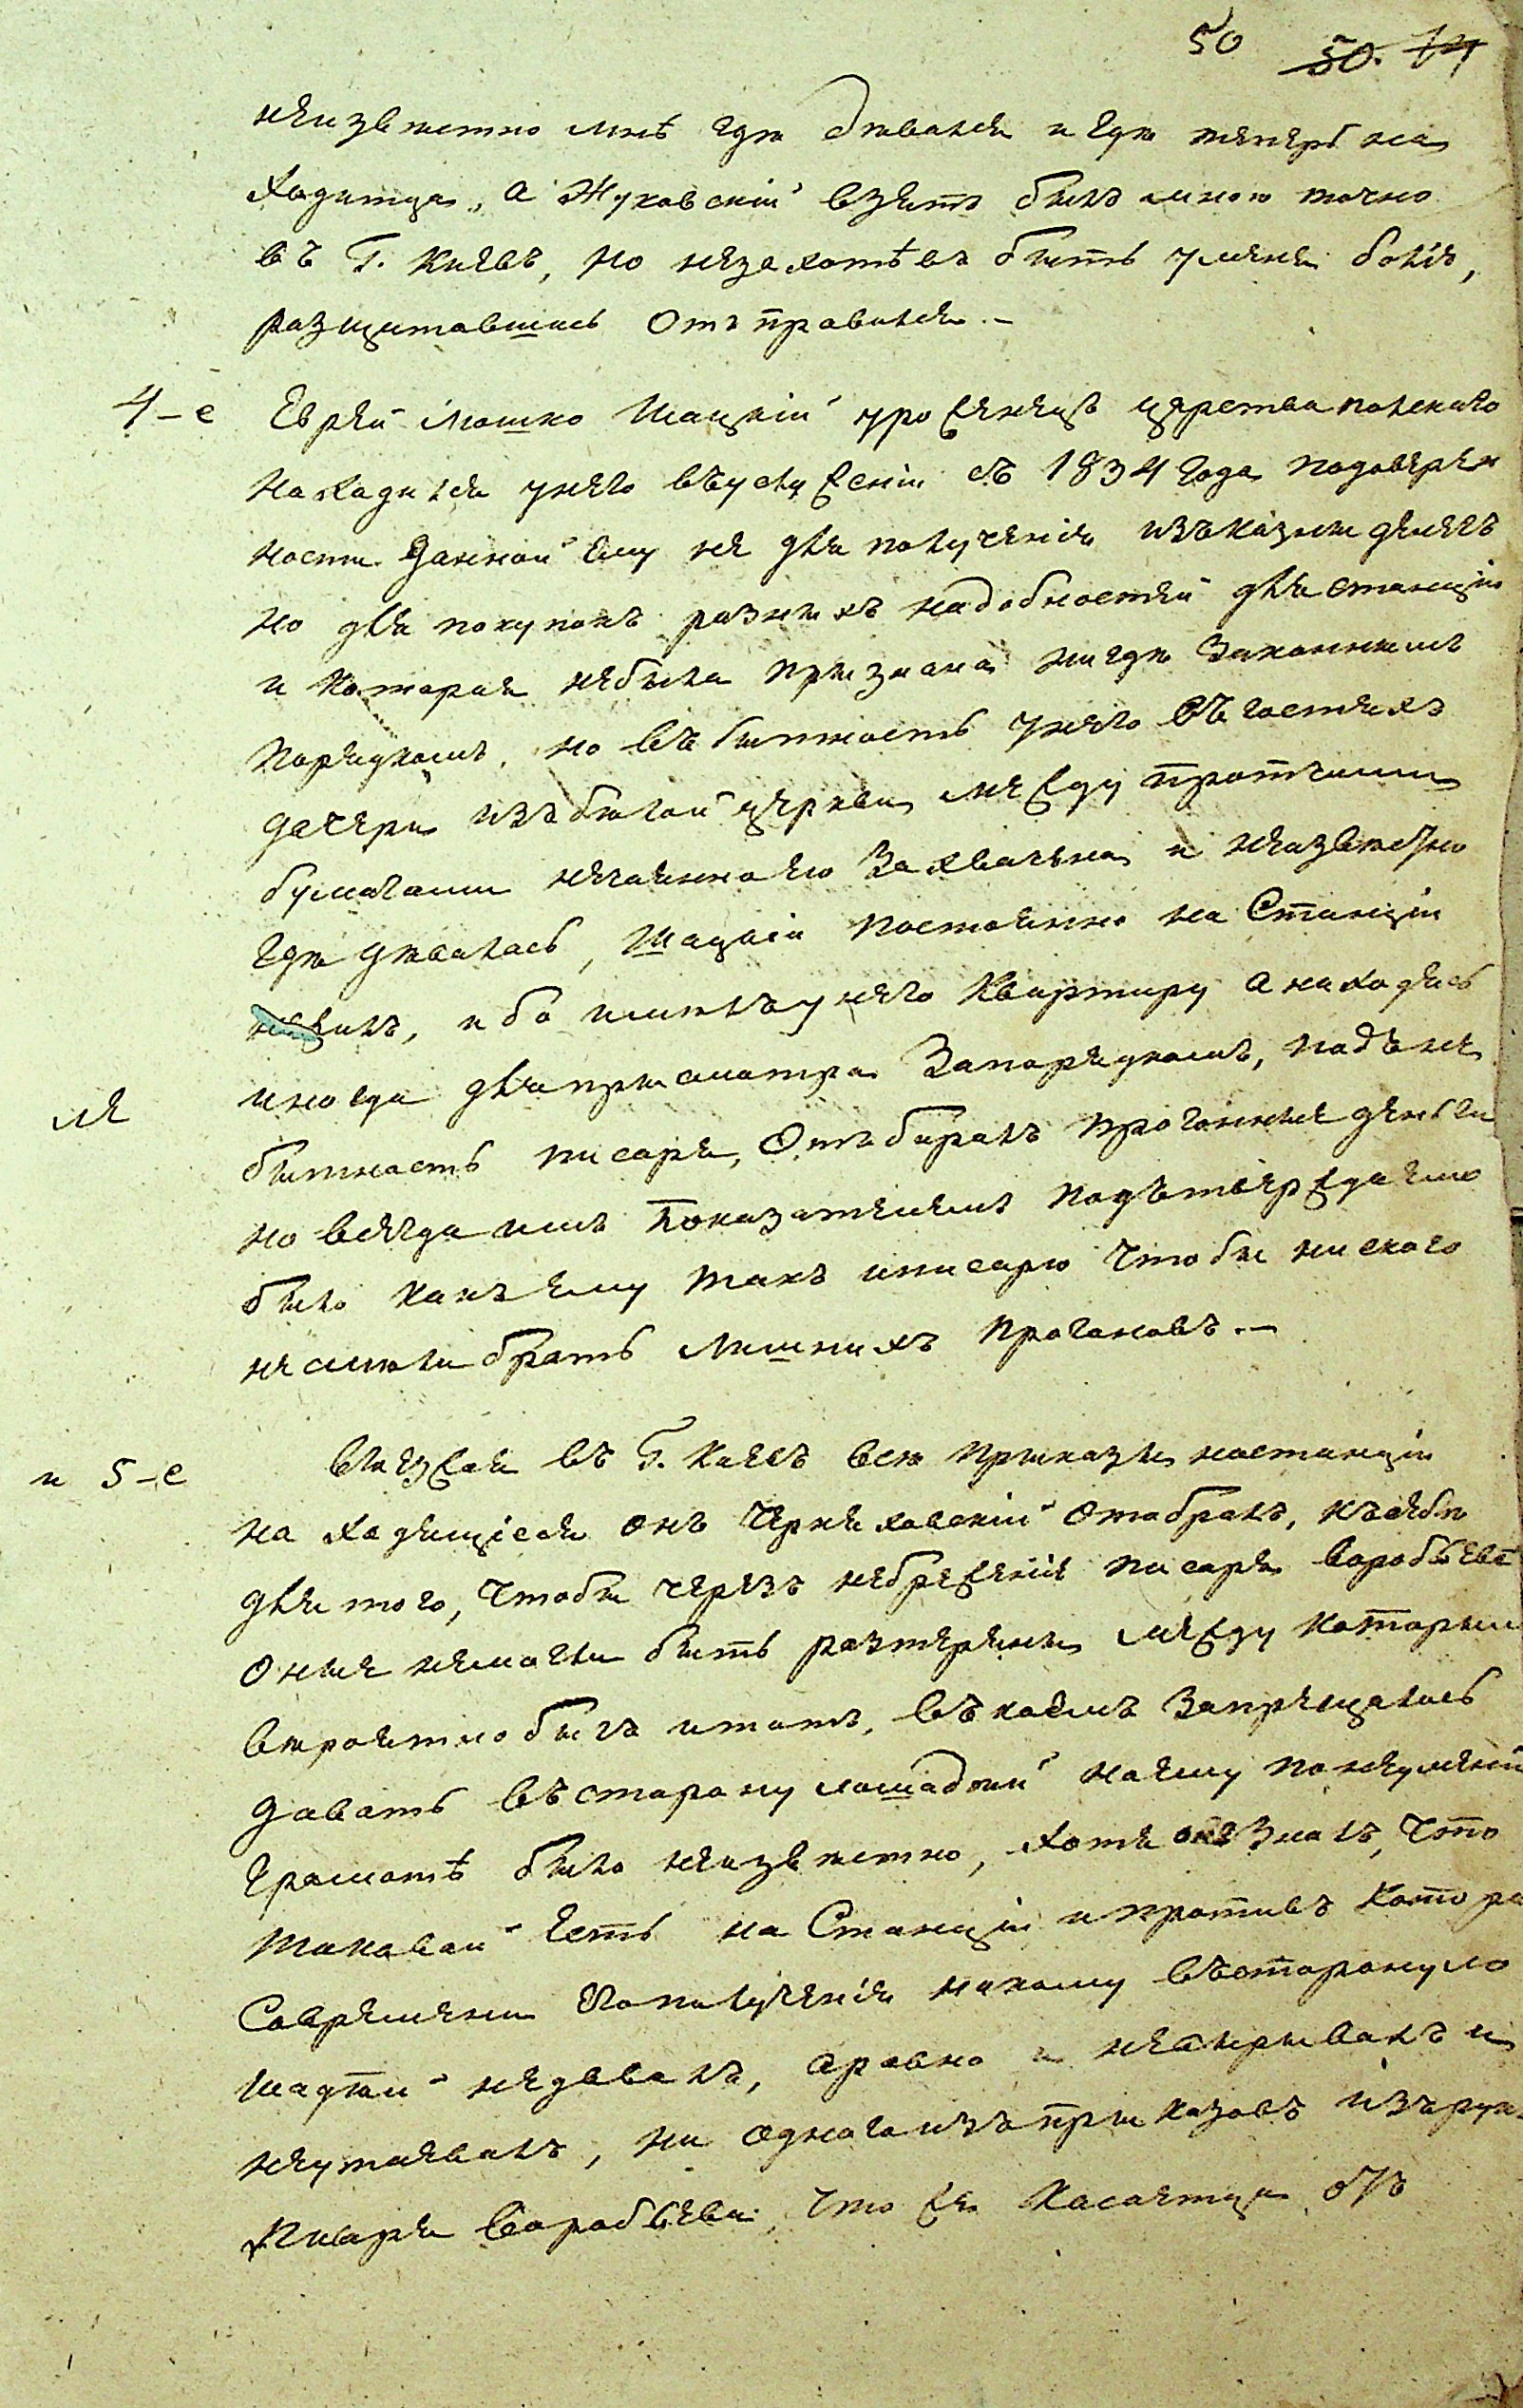 50 50. 74
неизвѣстно мнѣ гдѣ дѣвался и гдѣ теперь на
ходитца, а Жуховскій взятъ былъ мною точно
въ Г. Кіевѣ, но незахотѣвъ быть уменя болѣе,
разщитавшись отправился.–
4–е Еврей Мошко Шацкій уроженецъ царства польскаго
находился унего въуслуженіи съ 1834 года подоверен
ности данной ему не для полученія изъказны денегъ
но для покупокъ разныхъ надобностей для станціи
и которая небыла признана нигдѣ законнымъ
порядкомъ, но въбытность унего въгостяхъ
дочери изъбѣлой церкви между протчими
бумагами нечаянно ею захвачена и неизвѣстно
гдѣ дѣвалась, Шацкій постоянно на Станціи
нежилъ, ибо имѣлъ унего квартиру а находясь
иногда дляприсмотра запорядкомъ, подъне
бытность писаря, отъбиралъ прогонные деньги
но всегда имъ показателемъ подътверждаемо
было какъ ему такъ иписарю чтобы нискаго
несмѣли брать лишнихъ прогоновъ.–
и 5–е вЪезжая въ Г. Кіевъ всѣ приказы настанціи
находящіеся онъ Черняховскій отобралъ, ксебѣ
для того, чтобы чрезъ небреженіе писаря Воробьева
оные немогли быть разтеряны между которыми
вероятно былъ итотъ, въкоемъ запрещалось
давать въсторону лошадей ноему понеуменію
грамотѣ было неизвѣстно, хотя онъ зналъ, что
таковой есть на Станціи ипротивъ котора
Современи Пополученія никому въсторонуло
шадей недавалъ, аравно и нескрывалъ и
неутаевалъ, ни одногоизъприказовъ изърук
Писаря Воробьева, что же касаетца объ